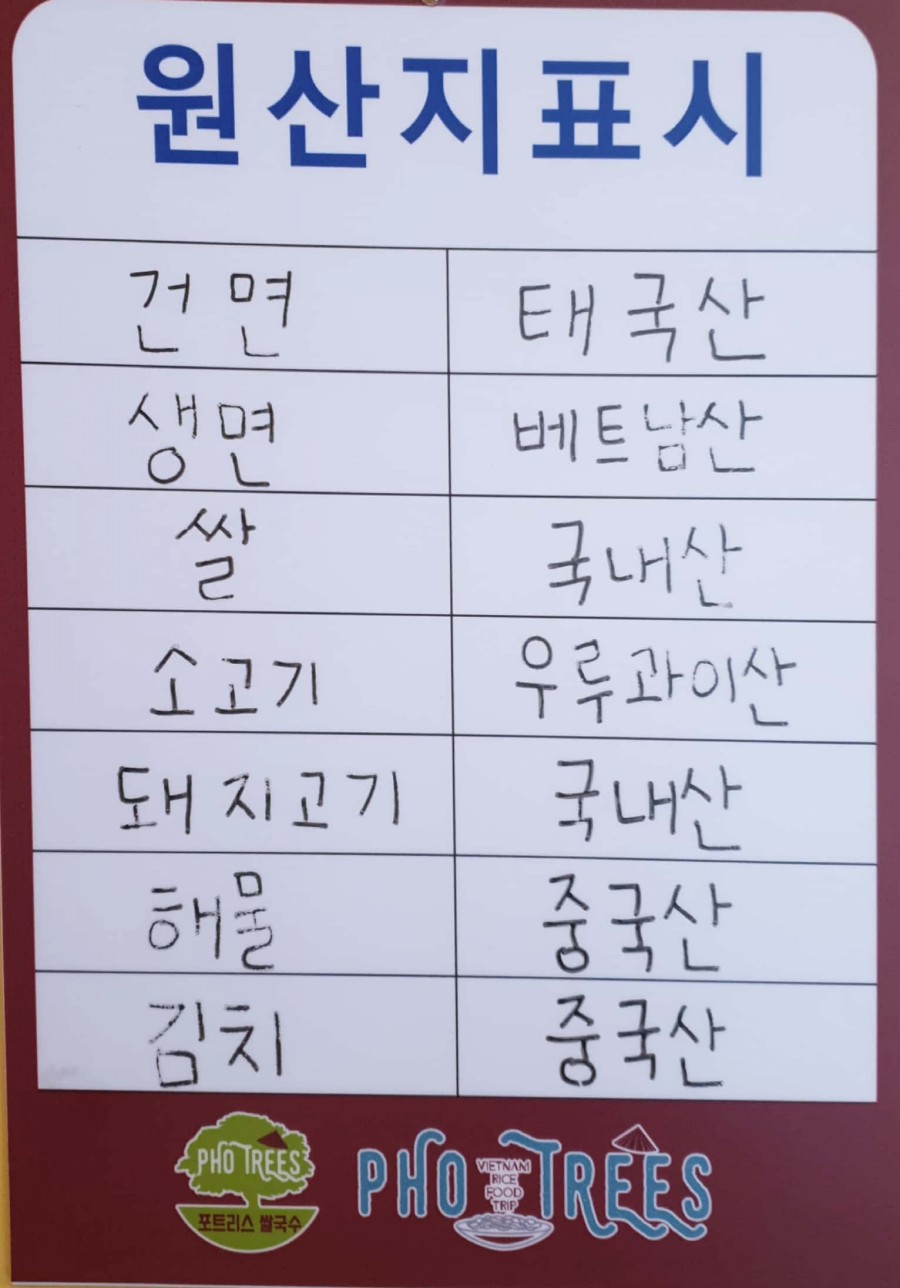 원산지표시
건면 태국산
생면 베트남산
쌀 국내산
소고기 우루과이산
돼지고기 국내산
해물 중국산
김치 중국산
PHO TREES
포트리스 쌀국수
PHO TREES
VIETNAM
RICE
FOOD
TRIP